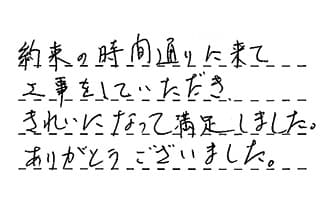 約束の時間通りに来て
工事をしていただき
きれいになって満足しました。
ありがとうございました。